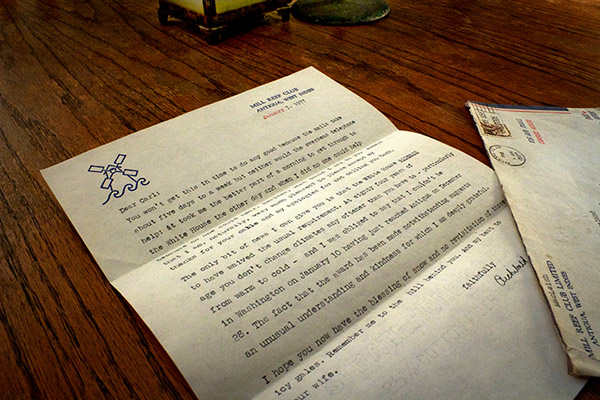 MILL REEF CLUB
ANTIGUA, WEST INDIES
January 3, 1977
Dear Carl:
You won't get this in time to do any good because the mails take
about five days to a week but neither would the overseas telephone
help: it took me the better part of a morning to get through to
the White House the other day and when I did no one could help
thanks for your and my apologies for not
The only bit of news I can give you is that the White House
to have waived the usual requirement. At eighty four years of
age you don't change climates any oftener than you have to - particularly
from warm to cold - and I was obliged to say that I couldn't be
in Washington on January 10 having just reached Antigua on December
28. The fact that the award has been made notwithstanding suggests
an unusual understanding and kindness for which I am deeply grateful.
I hope you now have the blessing of snow and no revisitation of those
icy gales. Remember me to the hill behind you. And my love to
your wife.
faithfully
MacLeish
MILL REEF CLUB LIMITED
ANTIGUA, WEST INDIES